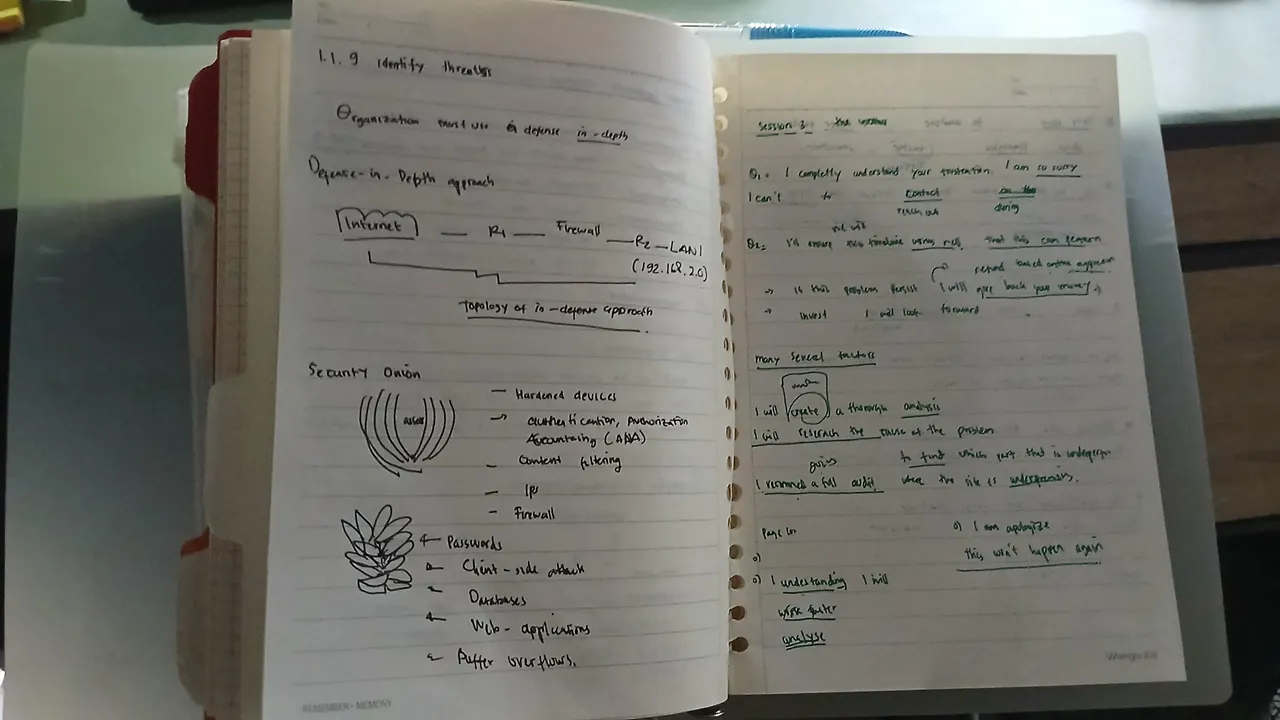 1.1.9 identify threats
Organization must use a defense in-depth
Defense-in-Depth approach
Internet — R1 — Firewall — R2 — LAN1
(192.168.2.0)
Topology of in-defense approach
Security Onion
asset
— Hardened devices
→ Authentication, Authorization
Accounting (AAA)
— Content filtering
— IPS
— Firewall
Passwords
Client-side attack
Databases
Web-applications
Buffer overflows.
REMEMBER - MEMORY
Session 3
Q1 = I completly understand your frustration. I am so sorry
I can't to contact on the
reach out during
Q2 =
that this can
refund based on the
→ is this problem persist I will give back your money
→ invest I will look forward
many several factors
I will create a thorough analysis
I will reserach the cause of the problem
to find which part that is underperm
I recommed a full audit. where the site is
Page
o) I am apologize
this won't happen again
o)
o) I understanding I will
work faster
analyse